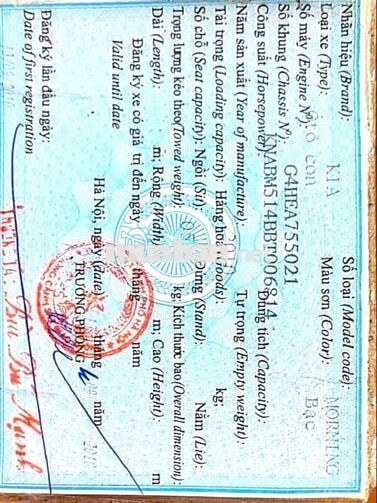 Nhãn hiệu (Brand): KIA Số loại (Model code): MORNING
Loại xe (Type): Ô tô con Màu sơn (Color): Bạc
Số máy (Engine Nº): G4HEA755021
Số khung (Chassis Nº): KNABM514BBT006814
Công suất (Horsepower): Dung tích (Capacity):
Năm sản xuất (Year of manufacture): Tự trọng (Empty weight):
Tải trọng (Loading capacity): Hàng hóa (Goods): kg;
Số chỗ (Seat capacity): Ngồi (Sit): 05 Đứng (Stand): Nằm (Lie):
Trọng lượng kéo theo (Towed weight): kg; Kích thước bao (Overall dimension):
Dài (Length): m; Rộng (Width): m; Cao (Height): m
Đăng ký xe có giá trị đến ngày tháng năm
Valid until date
Hà Nội, ngày (date) tháng năm
TRƯỞNG PHÒNG
Đăng ký lần đầu ngày:
Date of first registration